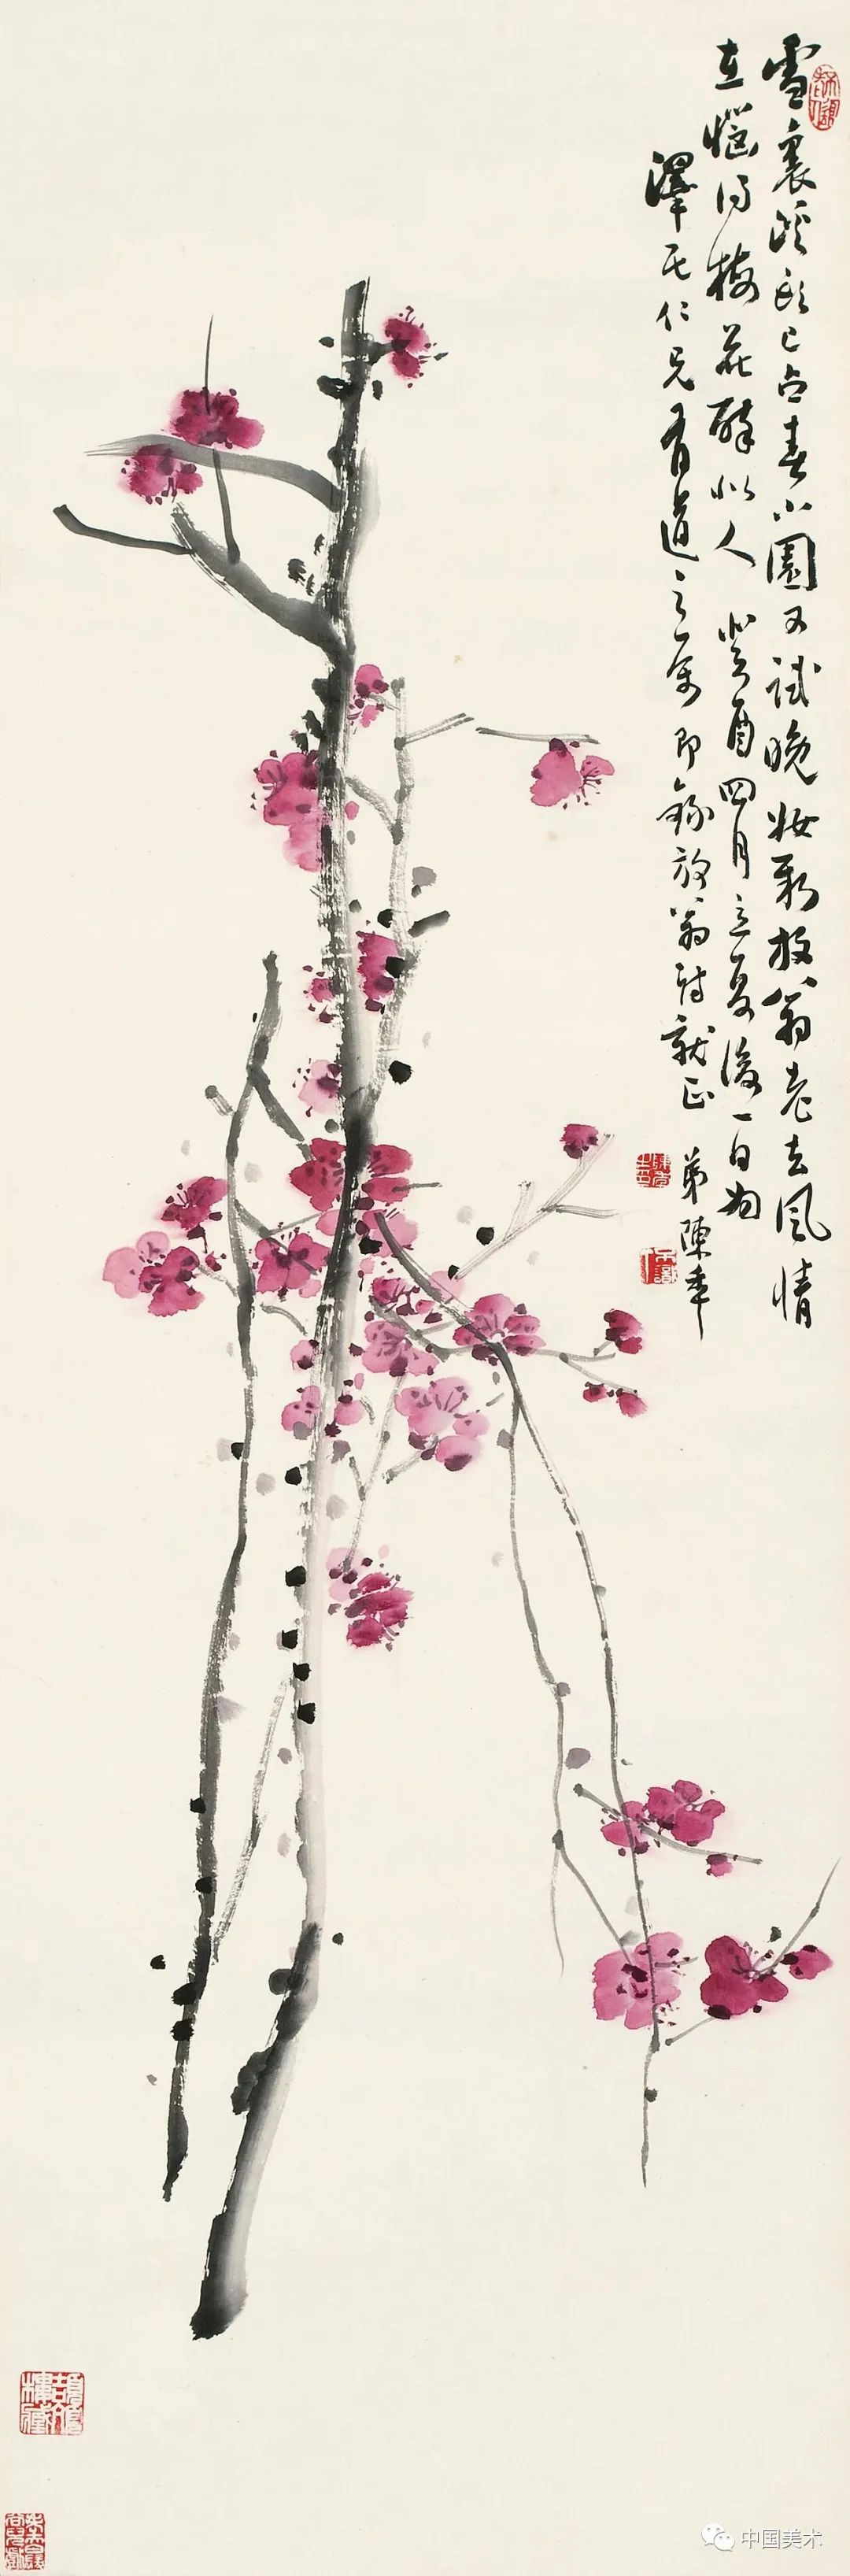 雪裏溪頭已占春小園又試晚妝新放翁老去風情
在惱得梅花醉似人 癸酉四月立夏後一日為
澤民仁兄有道之屬 即錄放翁詩就正 弟陳年
中国美术